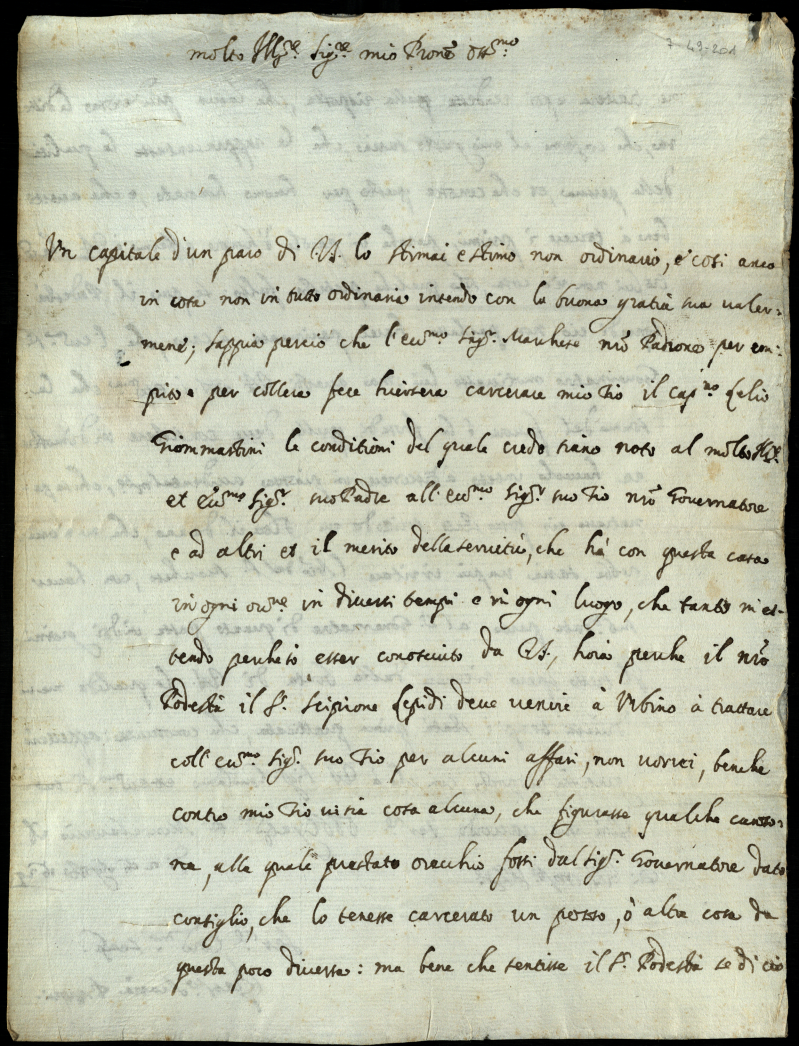 7-49-201
molto Ill.re Sig.re mio Pron̄e oss.mo
Un capitale d'un paro di VS. lo stimai e stimo non ordinario, e così anco
in cosa non in tutto ordinaria intendo con la buona gratia sua valer-
mene; sappia perciò che l'ecc.mo Sig.r Marchese nr̄o Padrone per em-
pito e per collera fece hiersera carcerare mio Tio il cap.no Lelio
Giommattini le conditioni del quale credo siano note al molto Ill.re
et ecc.mo Sig.r suo Padre all'ecc.mo Sig.r suo Tio nr̄o Governatore
e ad altri et il merito della servitù, che hà con questa casa
in ogni in diversi tempi e in ogni luogo, che tanto m'es-
tendo perche esser conosciuto da VS., hora perche il nr̄o
Podestà il S.r Scipione Lepidi deve venire à Urbino à trattare
coll'ecc.mo Sig.r suo Tio per alcuni affari, non vorrei, benche
contro mio Tio vi sia cosa alcuna, che figurasse qualche
na, alla quale prestato orecchio fossi dal Sig.r Governatore dato
consiglio, che lo tenesse carcerato un pezzo, ò altra cosa da
questa poco diversa: ma bene che sentisse il S.r Podestà se di ciò